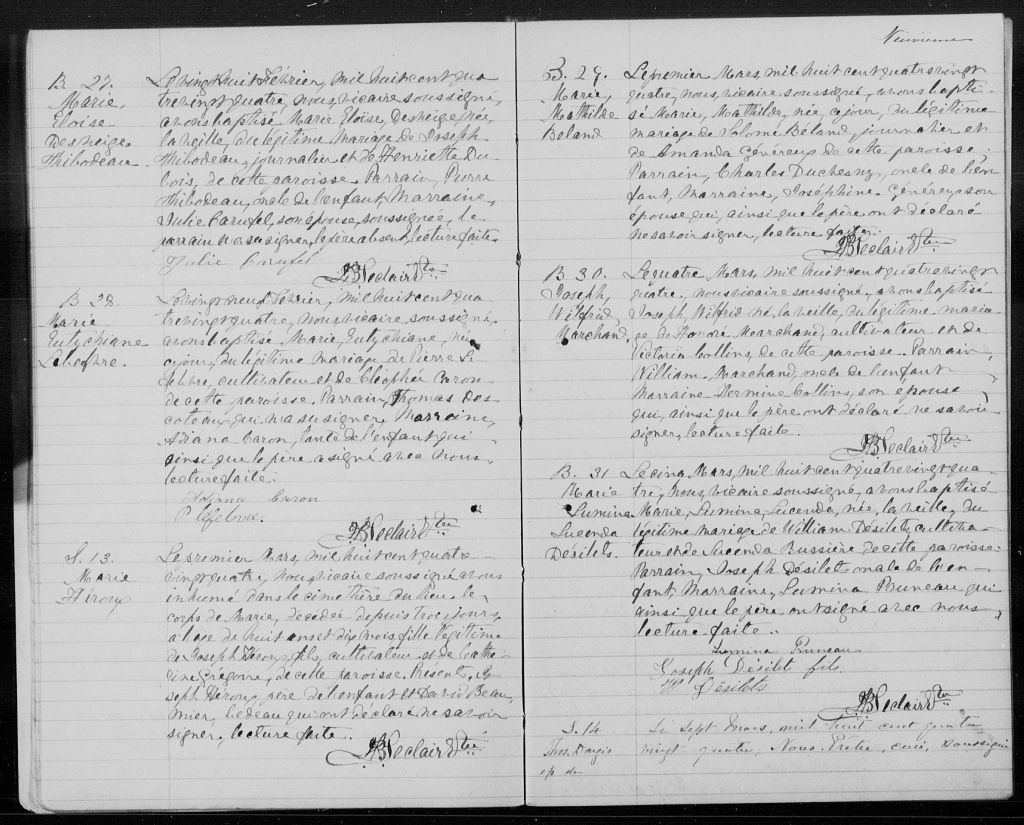 B. 27.
Marie,
Eloise
Desneiges
Thibodeau.
Le vingt huit Février, mil huit cent qua
tre vingt quatre, nous, vicaire soussigné,
avons baptisé Marie Eloise, Desneiges, née,
la veille, du légitime mariage de Joseph
Thibodeau, journalier et de Henriette Du
bois, de cette paroisse. Parrain, Pierre
Thibodeau, oncle de l'enfant, Marraine,
Julie Carufel, son épouse, soussignée, le
parrain n'a su signer, le père absent, lecture faite.
Julie Carufel
JB Leclair Ptre
B 28.
Marie
Eutychiane
Lefebvre.
Le vingt neuf Février, mil huit cent qua
tre vingt quatre, nous, vicaire soussigné,
avons baptisé Marie, Eutychiane, née
ce jour, du légitime mariage de Pierre Le
febvre, cultivateur et de Cléophée Caron
de cette paroisse. Parrain, Thomas Des
coteaux, qui n'a su signer, Marraine,
Adiana Caron, tante de l'enfant qui
ainsi que le père a signé avec nous
lecture faite.
Caron
P Lefebvre.
JB Leclair Ptre
S. 13.
Marie
Héroux
Le premier Mars, mil huit cent quatre
vingt quatre, nous vicaire soussigné avons
inhumé dans le cimetière du lieu le
corps de Marie, décédée depuis trois jours,
à l'age de huit ans et dix mois fille légitime
de Joseph Héroux, fils, cultivateur et de Cathe
rine Grégoire, de cette paroisse. Présents, Jo
seph Héroux, père de l'enfant et David Beau
mier, bedeau qui ont déclaré ne savoir
signer, lecture faite.
JB Leclair Ptre
Neuvième
B. 29.
Marie,
Mathilde
Beland
Le premier Mars, mil huit cent quatre vingt
quatre, nous, vicaire soussigné, avons bapti-
sé Marie, Mathilde, née, ce jour, du légitime
mariage de Salomé Béland, journalier et
de Amanda Généreux de cette paroisse,
Parrain, Charles Duchesny, oncle de l'en
fant, Marraine, Joséphine Généreux son
épouse qui, ainsi que le père ont déclaré
ne savoir signer, lecture faite.
JB Leclair Ptre
B 30.
Joseph,
Wilfrid
Marchand
Le quatre Mars, mil huit cent quatre vingt
quatre, nous vicaire soussigné, avons baptisé
Joseph, Wilfrid né, la veille, du légitime maria
ge de Honoré Marchand, cultivateur et de
Victoria Collins, de cette paroisse. Parrain,
William Marchand, oncle de l'enfant
Marraine Hermine Collins, son épouse
qui, ainsi que le père ont déclaré ne savoir
signer, lecture faite.
JB Leclair Ptre
B. 31
Marie
Lumina
Lucenda
Désilets.
Le cinq Mars, mil huit cent quatre vingt qua-
tre, nous, vicaire soussigné, avons baptisé
Marie, Lumina, Lucenda, née, la veille, du
légitime mariage de William Désilets, cultiva-
teur et de Lucenda Bussière de cette paroisse.
Parrain, Joseph Désilets oncle de l'en-
fant, Marraine, Lumina Pruneau qui
ainsi que le père ont signé avec nous
lecture faite.
Lumina Pruneau
Joseph Désilet fils
W Désilets
JB Leclair Ptre
S. 14
ep de
Le sept mars, mil huit cent quatre
vingt quatre, Nous Prêtre, curé, soussigné